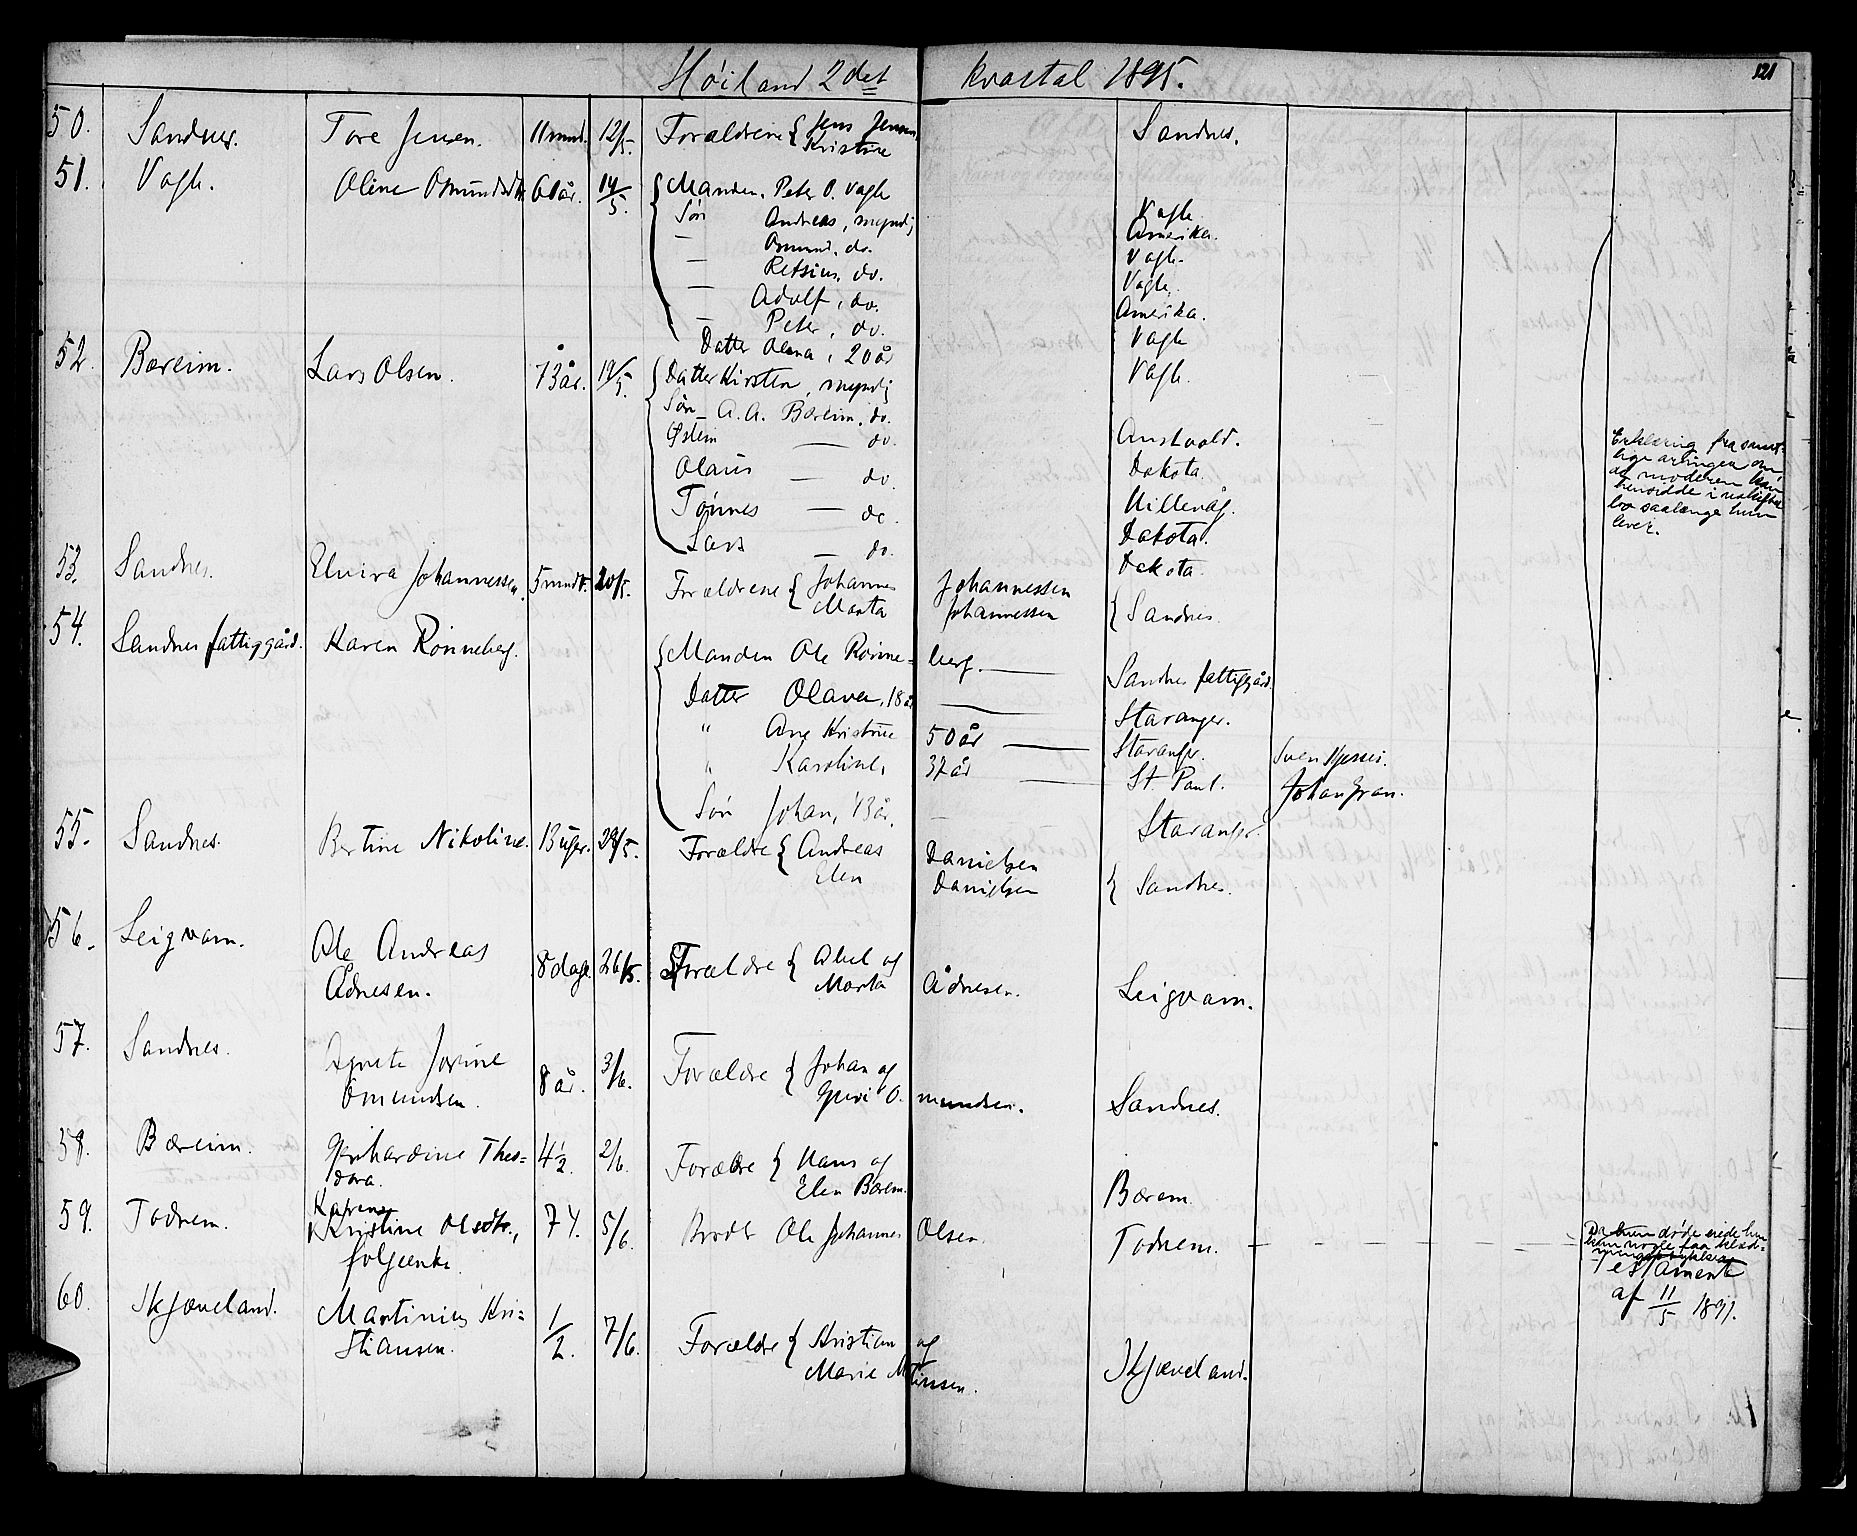 Høiland 2det kvartal 1895.
121
50. Sandnes. Tore Jensen. 11 mnd. 12/5. Forældrene { Jens Jensen Sandnes.
Kristine
51. Vagle. Oline Omundsdtr. 60 år. 14/5. { Manden, Peter O. Vagle Vagle
Søn Andreas, myndig Amerika.
— Omund, do. Vagle.
— Retsius, do. Vagle.
— Adolf, do. Amerika.
— Peter, do. Vagle
Datter Olena, 20 år Vagle.
52. Bæreim. Lars Olsen. 73 år. 19/5. { Datter Kirsten, myndig
Søn — A. A. Bæreim, do. Dakota
Østein — do.
Olaus — do.
Tønnes — do. Dakota.
Lars — do. Dakota.
Erklæring fra samt-
lige arvinger om
at moderen kan
hensidde i uskiftet
bo saalænge hun
lever.
53. Sandnes. Elvira Johannessen. 5 mndr. 20/5. Forældrene { Johannes Johannessen
Marta Johannessen { Sandnes.
54. Sandnes fattiggård. Karen Rönneberg. { Manden Ole Rönne= berg. — Sandnes fattiggård.
Datter Olava, 18 år — Stavanger.
" Ane Kristine 50 år — Stavanger.
" Karoline, 37 år — St. Paul. Johan Gran.
Søn Johan, 13 år. — Stavanger.
55. Sandnes. Bertine Nikoline. 13 uger. 29/5. Forældre { Andreas Danielsen
Elen Danielsen { Sandnes.
56. Leigvam. Ole Andreas 8 dage. 26/5. Forældre { Abel og
Ådnesen. Marta Ådnesen. Leigvam.
57. Sandnes. Agnete Jorine 8 år. 3/6. Forældre { Johan og
Omundsen. Guri O. mundsen. Sandnes.
58. Bæreim. Gerhardine Theo= 4½. 2/6. Forældre { Hans og
dora. Elen Bærem. Bærem.
59. Todnem. Karen
Kristine Olsdtr., 74. 5/6. Broder Ole Johannes Olsen. Todnem. — — — — —
folgeenke.
Testament
af 11/5 1891.
60. Skjæveland. Martinius Kri= ½. 7/6. Forældre { Kristian og
stiansen. Marie Mtinsen. Skjæveland.